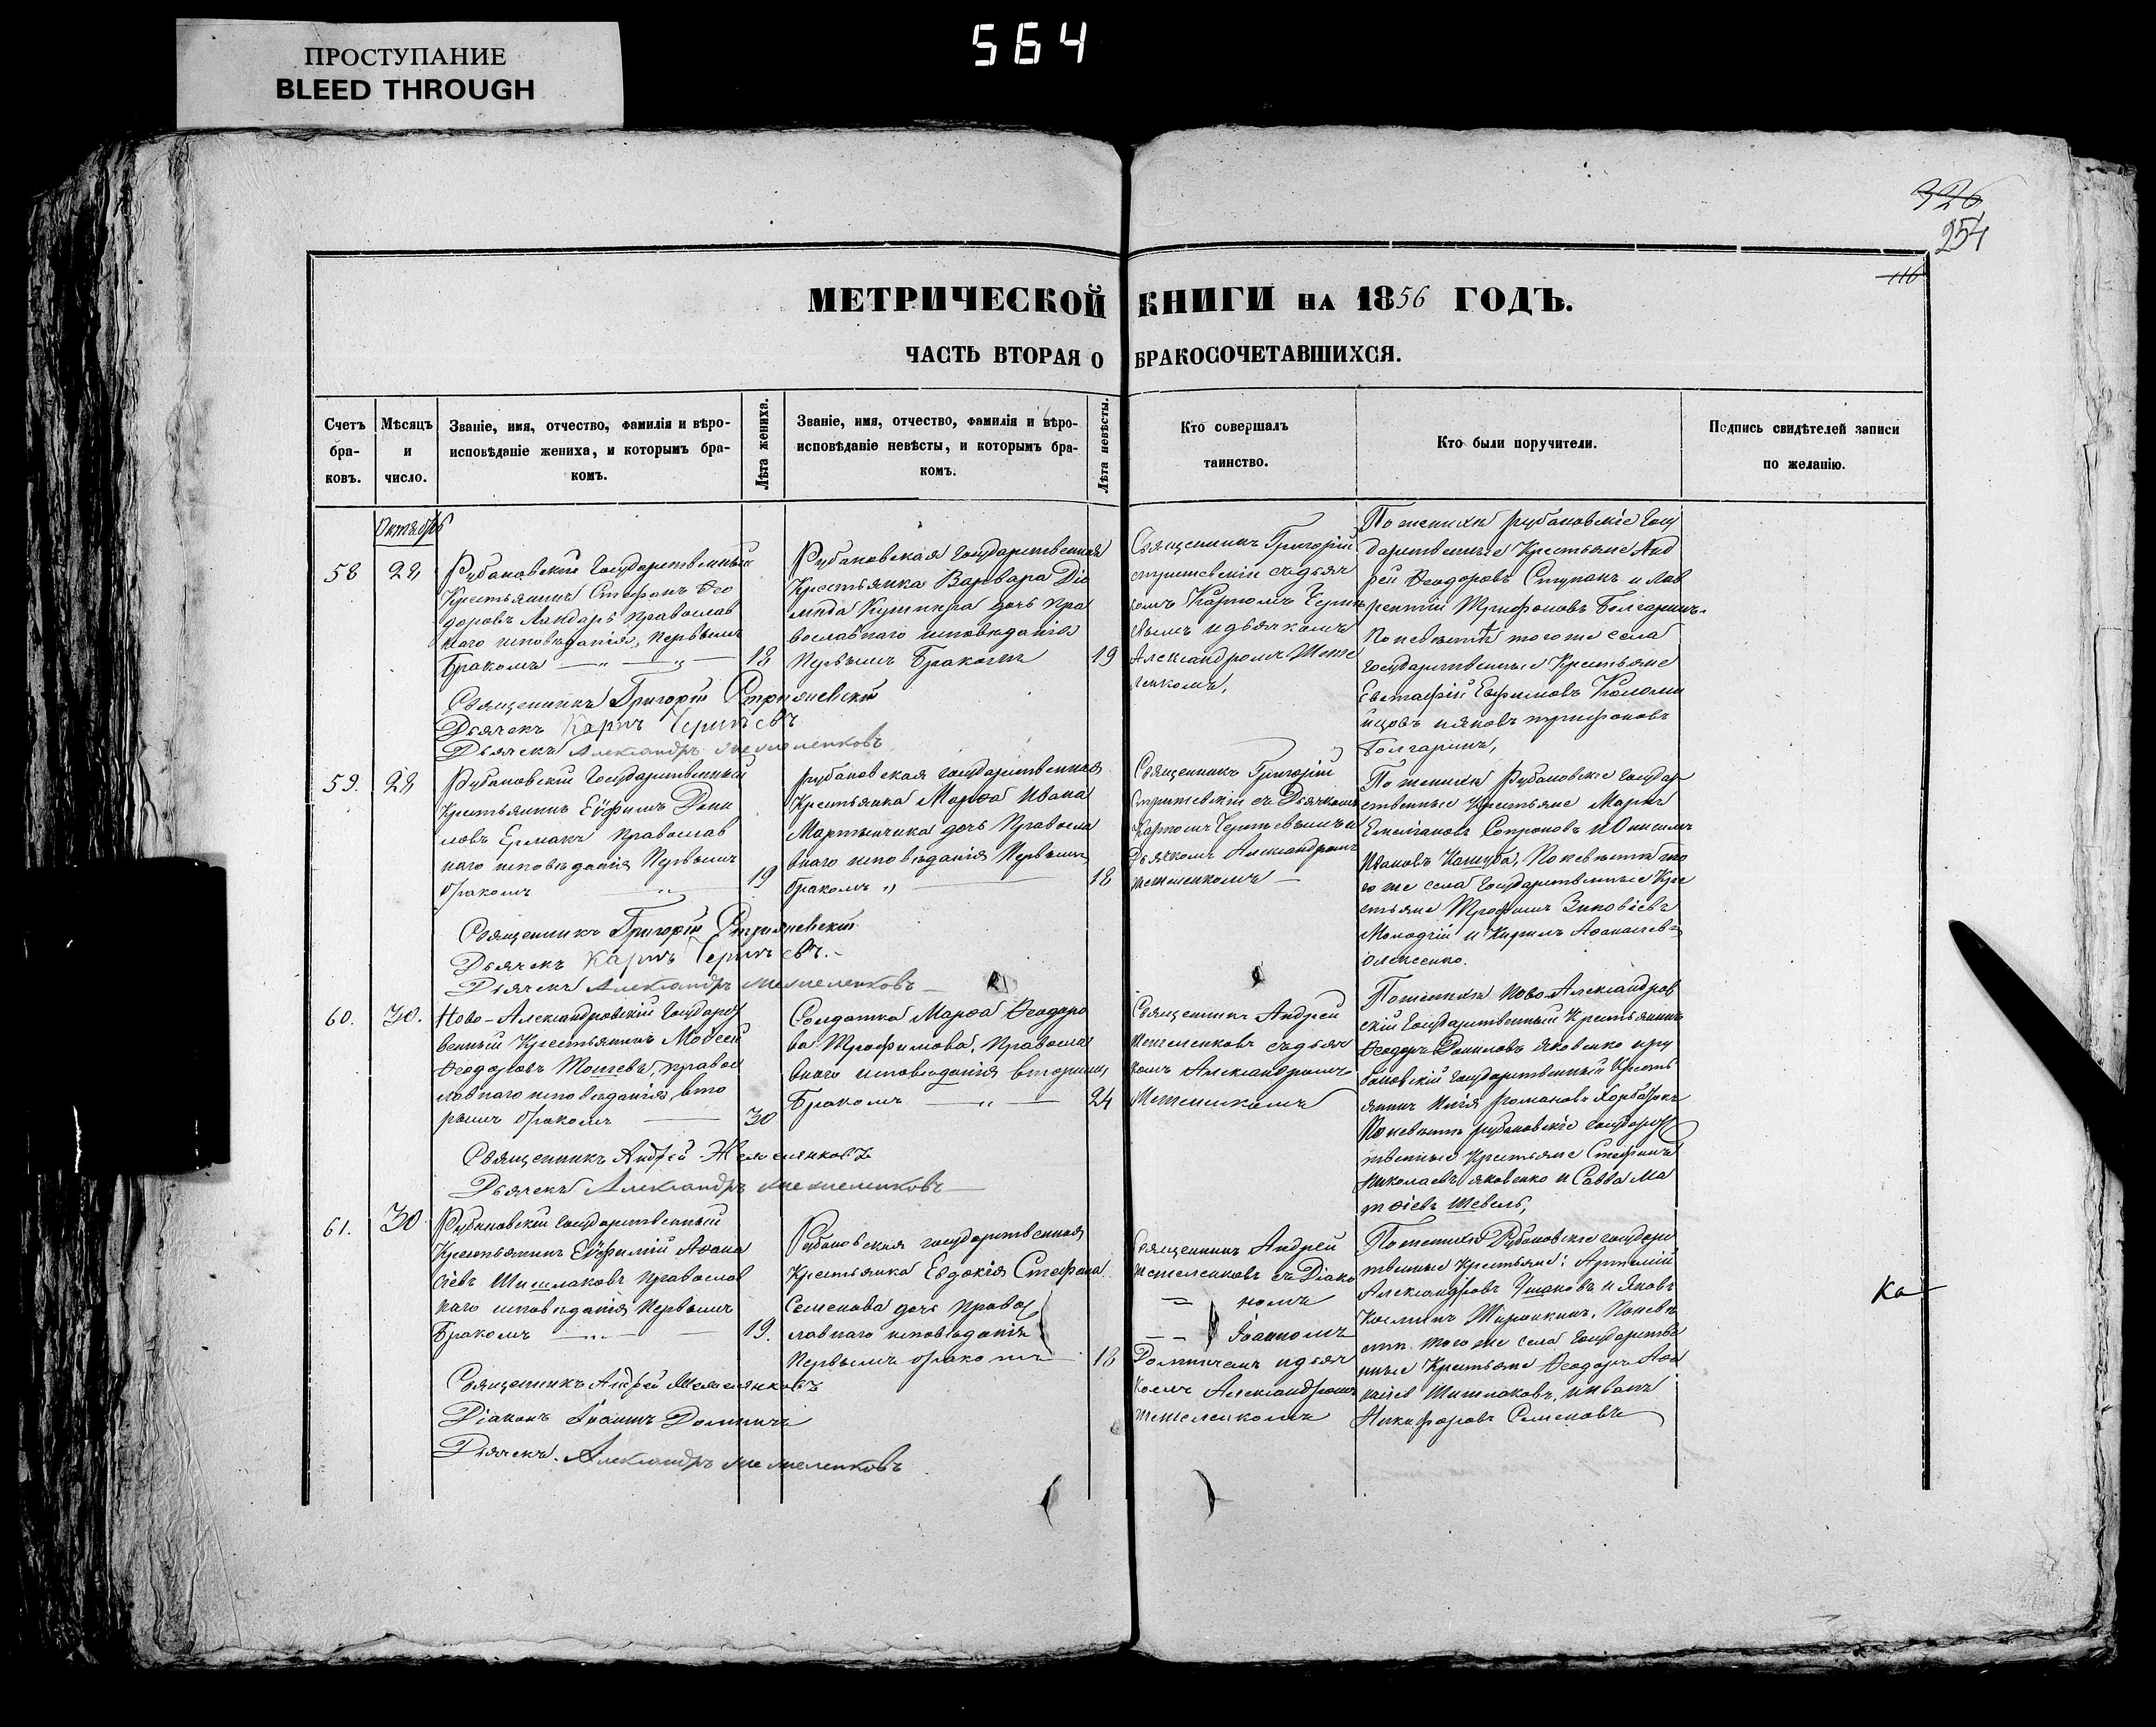 564
ПРОСТУПАНИЕ
BLEED THROUGH
326
254
116
МЕТРИЧЕСКОЙ КНИГИ НА 1856 ГОДЪ.
ЧАСТЬ ВТОРАЯ О БРАКОСОЧЕТАВШИХСЯ.
Счетъ
бра-
ковъ.
Мѣсяцъ
и
число.
Званіе, имя, отчество, фамилія и вѣро-
исповѣданіе жениха, и которымъ бра-
комъ.
Лѣта жениха.
Званіе, имя, отчество, фамилія и вѣро-
исповѣданіе невѣсты, и которымъ бра-
комъ.
Лѣта невѣсты.
Кто совершалъ
таинство.
Кто были поручители.
Подпись свидѣтелей записи
по желанію.
Октябрь
58
28
Рубановскій Государственный
Крестьянинъ Стефанъ Ѳео
доровъ православ
наго исповѣданія, первымъ
бракомъ
18
Рубановская Государственная
Крестьянка Варвара
дочь пра
вославнаго исповѣданія
первымъ бракомъ
19
Священникъ Григорій
съ дьяч
комъ Карпомъ
и дьячкомъ
Александромъ Меме
ленкомъ,
По женихѣ рубановскіе Госу
дарственные Крестьяне Анд
рей Ѳеодоровъ Ступакъ и Лав
рентій Трифоновъ Болгаринъ.
По невѣстѣ того же села
Государственные Крестьяне
Евстафій Ефимовъ Коломи
йцовъ и Яковъ Трифоновъ
Болгаринъ,
Священникъ Григорій
Дьячекъ Карпъ
Дьячекъ Александръ
59.
28
Рубановскій Государственный
Крестьянинъ Еѵфимъ Дани
ловъ Ермакъ православ
наго исповѣданія первымъ
бракомъ
19
рубановская Государственная
Крестьянка Марѳа Ивана
Мартынчика дочь Правосла
внаго исповѣданія первымъ
бракомъ
18
Священникъ Григорій
съ Дьячкомъ
Карпомъ и
Дьячкомъ Александромъ
По женихѣ Рубановскіе Государ
ственные Крестьяне Маркъ
Емеліановъ Сопроновъ и Онисимъ
Ивановъ Кашуба, По невѣстѣ то
го же села Государственные Кре
стьяне Трофимъ Зиновіевъ
Молодчій и Кирилъ Аѳанасіевъ
Олексенко.
Священникъ Григорій
Дьячекъ Карпъ
Дьячекъ Александръ
60.
30.
Ново-Александровскій Государст
венный Крестьянинъ Моѵсей
Ѳеодоровъ правос
лавнаго исповѣданія, вто
рымъ бракомъ
30
Солдатка Марѳа Ѳеодоро
ва Трофимова, Правосла
внаго исповѣданія вторымъ
бракомъ
24
Священникъ Андрей
съ дьяч
комъ Александромъ
По женихѣ Ново-Александров
скій Государственный Крестьянинъ
Ѳеодоръ Даниловъ Яковенко и ру
бановскій Государственный Кресть
янинъ Илія Романовъ
По невѣстѣ рубановскіе Государс
твенные Крестьяне Стефанъ
Николаевъ Яковенко и Савва Ма
тѳіевъ Шевель,
Священникъ Андрей
Дьячекъ Александръ
61.
30
Рубановскій Государственный
Крестьянинъ Еѵфимій Аѳана
сіевъ Шишлаковъ православ
наго исповѣданія первымъ
бракомъ
19.
Рубановская государственная
Крестьянка Евдокія Стефана
Семенова дочь Правос
лавнаго исповѣданія
первымъ бракомъ
18
Священникъ Андрей
съ Діако
номъ
Іоанномъ
и дьяч
комъ Александромъ
По женихѣ Рубановскіе государс
твенные крестьяне: Артемій
Александровъ Ушаковъ и Яковъ
По невѣ
стѣ того же села Государстве
нные Крестьяне Ѳеодоръ Аѳа
насіев Шишлаковъ, Иванъ
Никифоровъ Семеновъ
Священникъ Андрей
Діаконъ Іоаннъ
Дьячекъ. Александръ
Ка